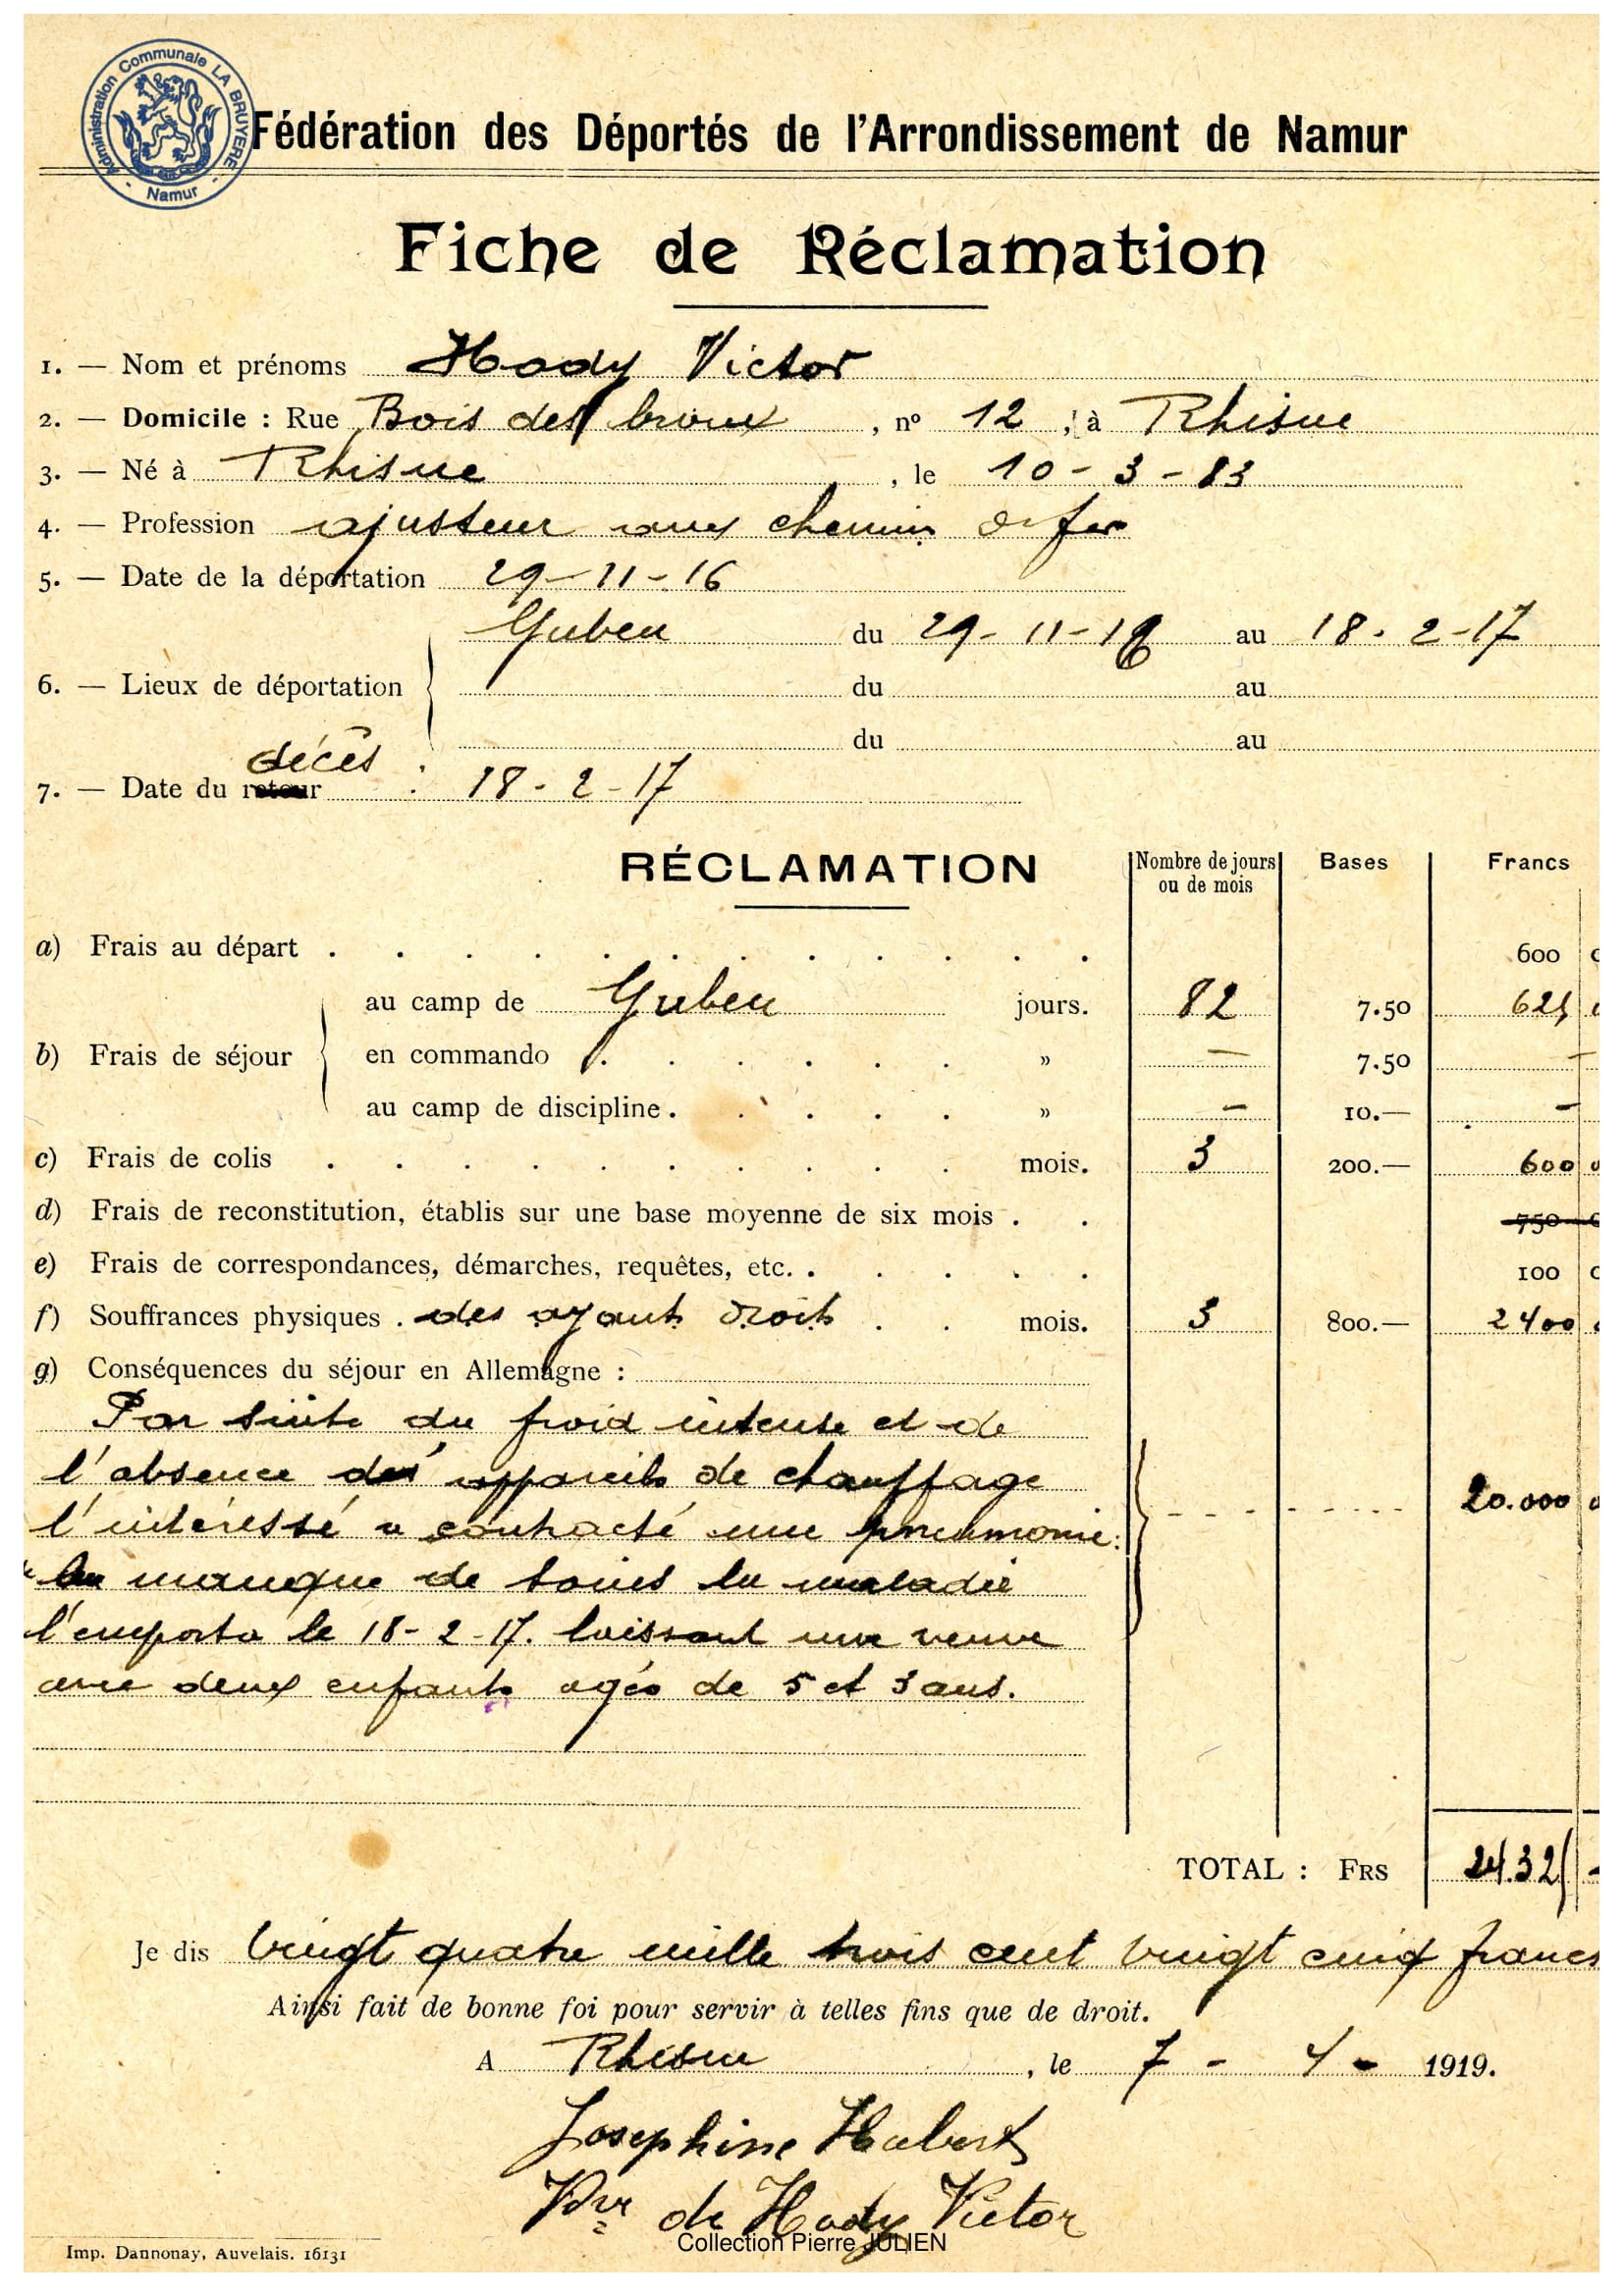 Administration Communale LA BRUYERE
- Namur -
Fédération des Déportés de l'Arrondissement de Namur
Fiche de Réclamation
1. — Nom et prénoms Hody Victor
2. — Domicile : Rue Bois des , nº 12 , à Rhisne
3. — Né à Rhisne , le 10 - 3 - 83
4. — Profession ajusteur aux chemins de fer
5. — Date de la déportation 29 - 11 - 16
Guben du 29 - 11 - 16 au 18 - 2 - 17
6. — Lieux de déportation du au
du au
décès :
7. — Date du retour 18 - 2 - 17
RÉCLAMATION Nombre de jours ou de mois Bases Francs
a) Frais au départ 600
au camp de Guben jours. 82 7.50 625
b) Frais de séjour en commando » — 7.50 —
au camp de discipline » — 10.— —
c) Frais de colis mois. 3 200.— 600
d) Frais de reconstitution, établis sur une base moyenne de six mois 750
e) Frais de correspondances, démarches, requêtes, etc. 100
f) Souffrances physiques des ayants droits mois. 3 800.— 2400
g) Conséquences du séjour en Allemagne :
Par suite du froid intense et de
l'absence des appareils de chauffage
l'intéressé a contracté une pneumonie. 20.000
manque de soins la maladie
l'emporta le 18 - 2 - 17. laissant une veuve
avec deux enfants agés de 5 et 3 ans.
TOTAL : FRS 24.325
Je dis vingt quatre mille trois cent vingt cinq francs
Ainsi fait de bonne foi pour servir à telles fins que de droit.
A Rhisne , le 7 - 4 - 1919.
Josephine Habert
Vve de Hody Victor
Collection Pierre JULIEN
Imp. Dannonay, Auvelais. 16131